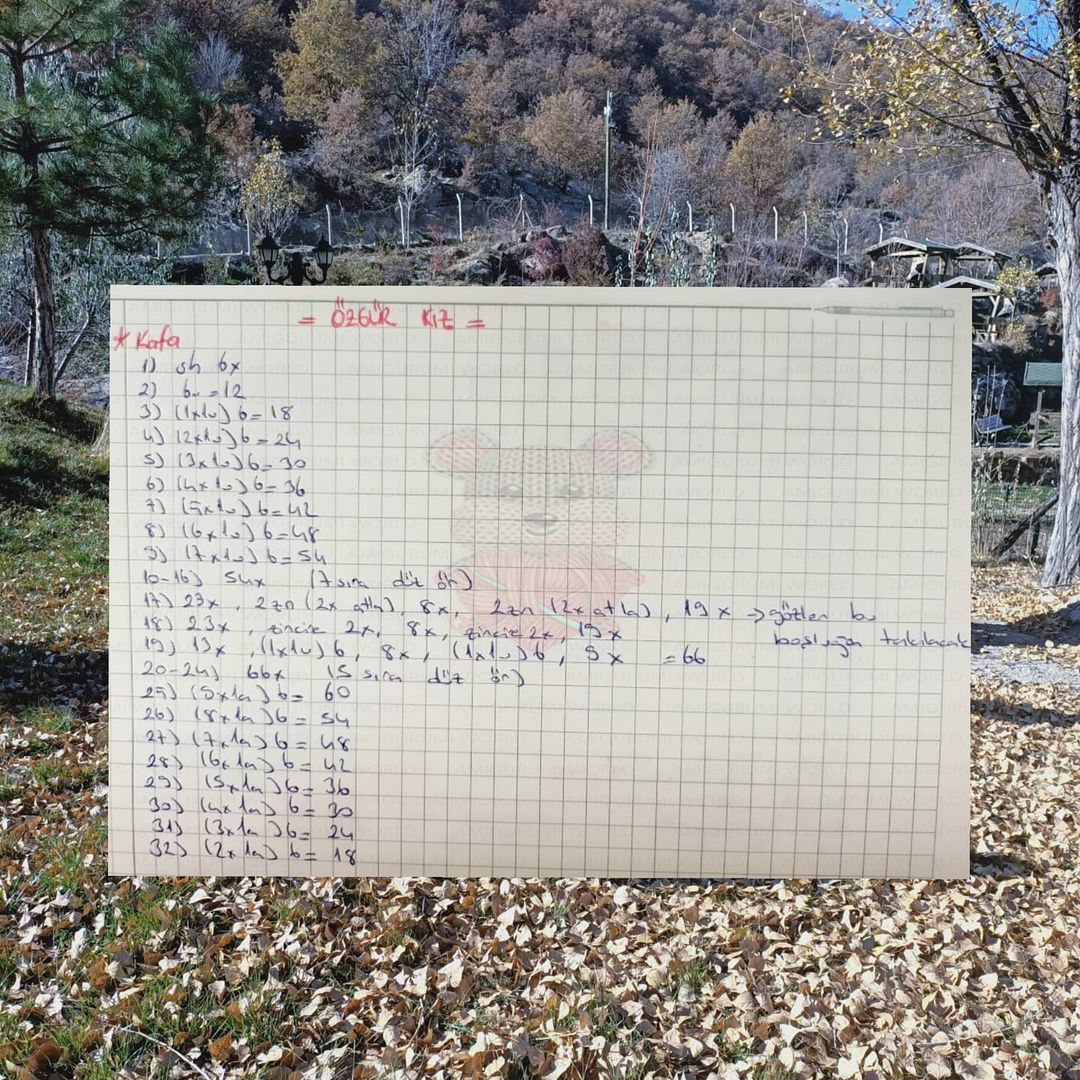 = ÖZGÜR KIZ =
* Kafa
1) sh 6x
2) 6v = 12
3) (1x1v) 6 = 18
4) (2x1v) 6 = 24
5) (3x1v) 6 = 30
6) (4x1v) 6 = 36
7) (5x1v) 6 = 42
8) (6x1v) 6 = 48
9) (7x1v) 6 = 54
10-16) 54x (7 sıra düz ör)
17) 23x, 2zn (2x atla), 8x, 2zn (2x atla), 19x → gözler bu boşluğa takılacak
18) 23x, zincire 2x, 8x, zincire 2x, 19x
19) 13x, (1x1v) 6, 8x, (1x1v) 6, 9x = 66
20-24) 66x (5 sıra düz ör)
25) (9x1a) 6 = 60
26) (8x1a) 6 = 54
27) (7x1a) 6 = 48
28) (6x1a) 6 = 42
29) (5x1a) 6 = 36
30) (4x1a) 6 = 30
31) (3x1a) 6 = 24
32) (2x1a) 6 = 18
AMIGURUMI WORLD